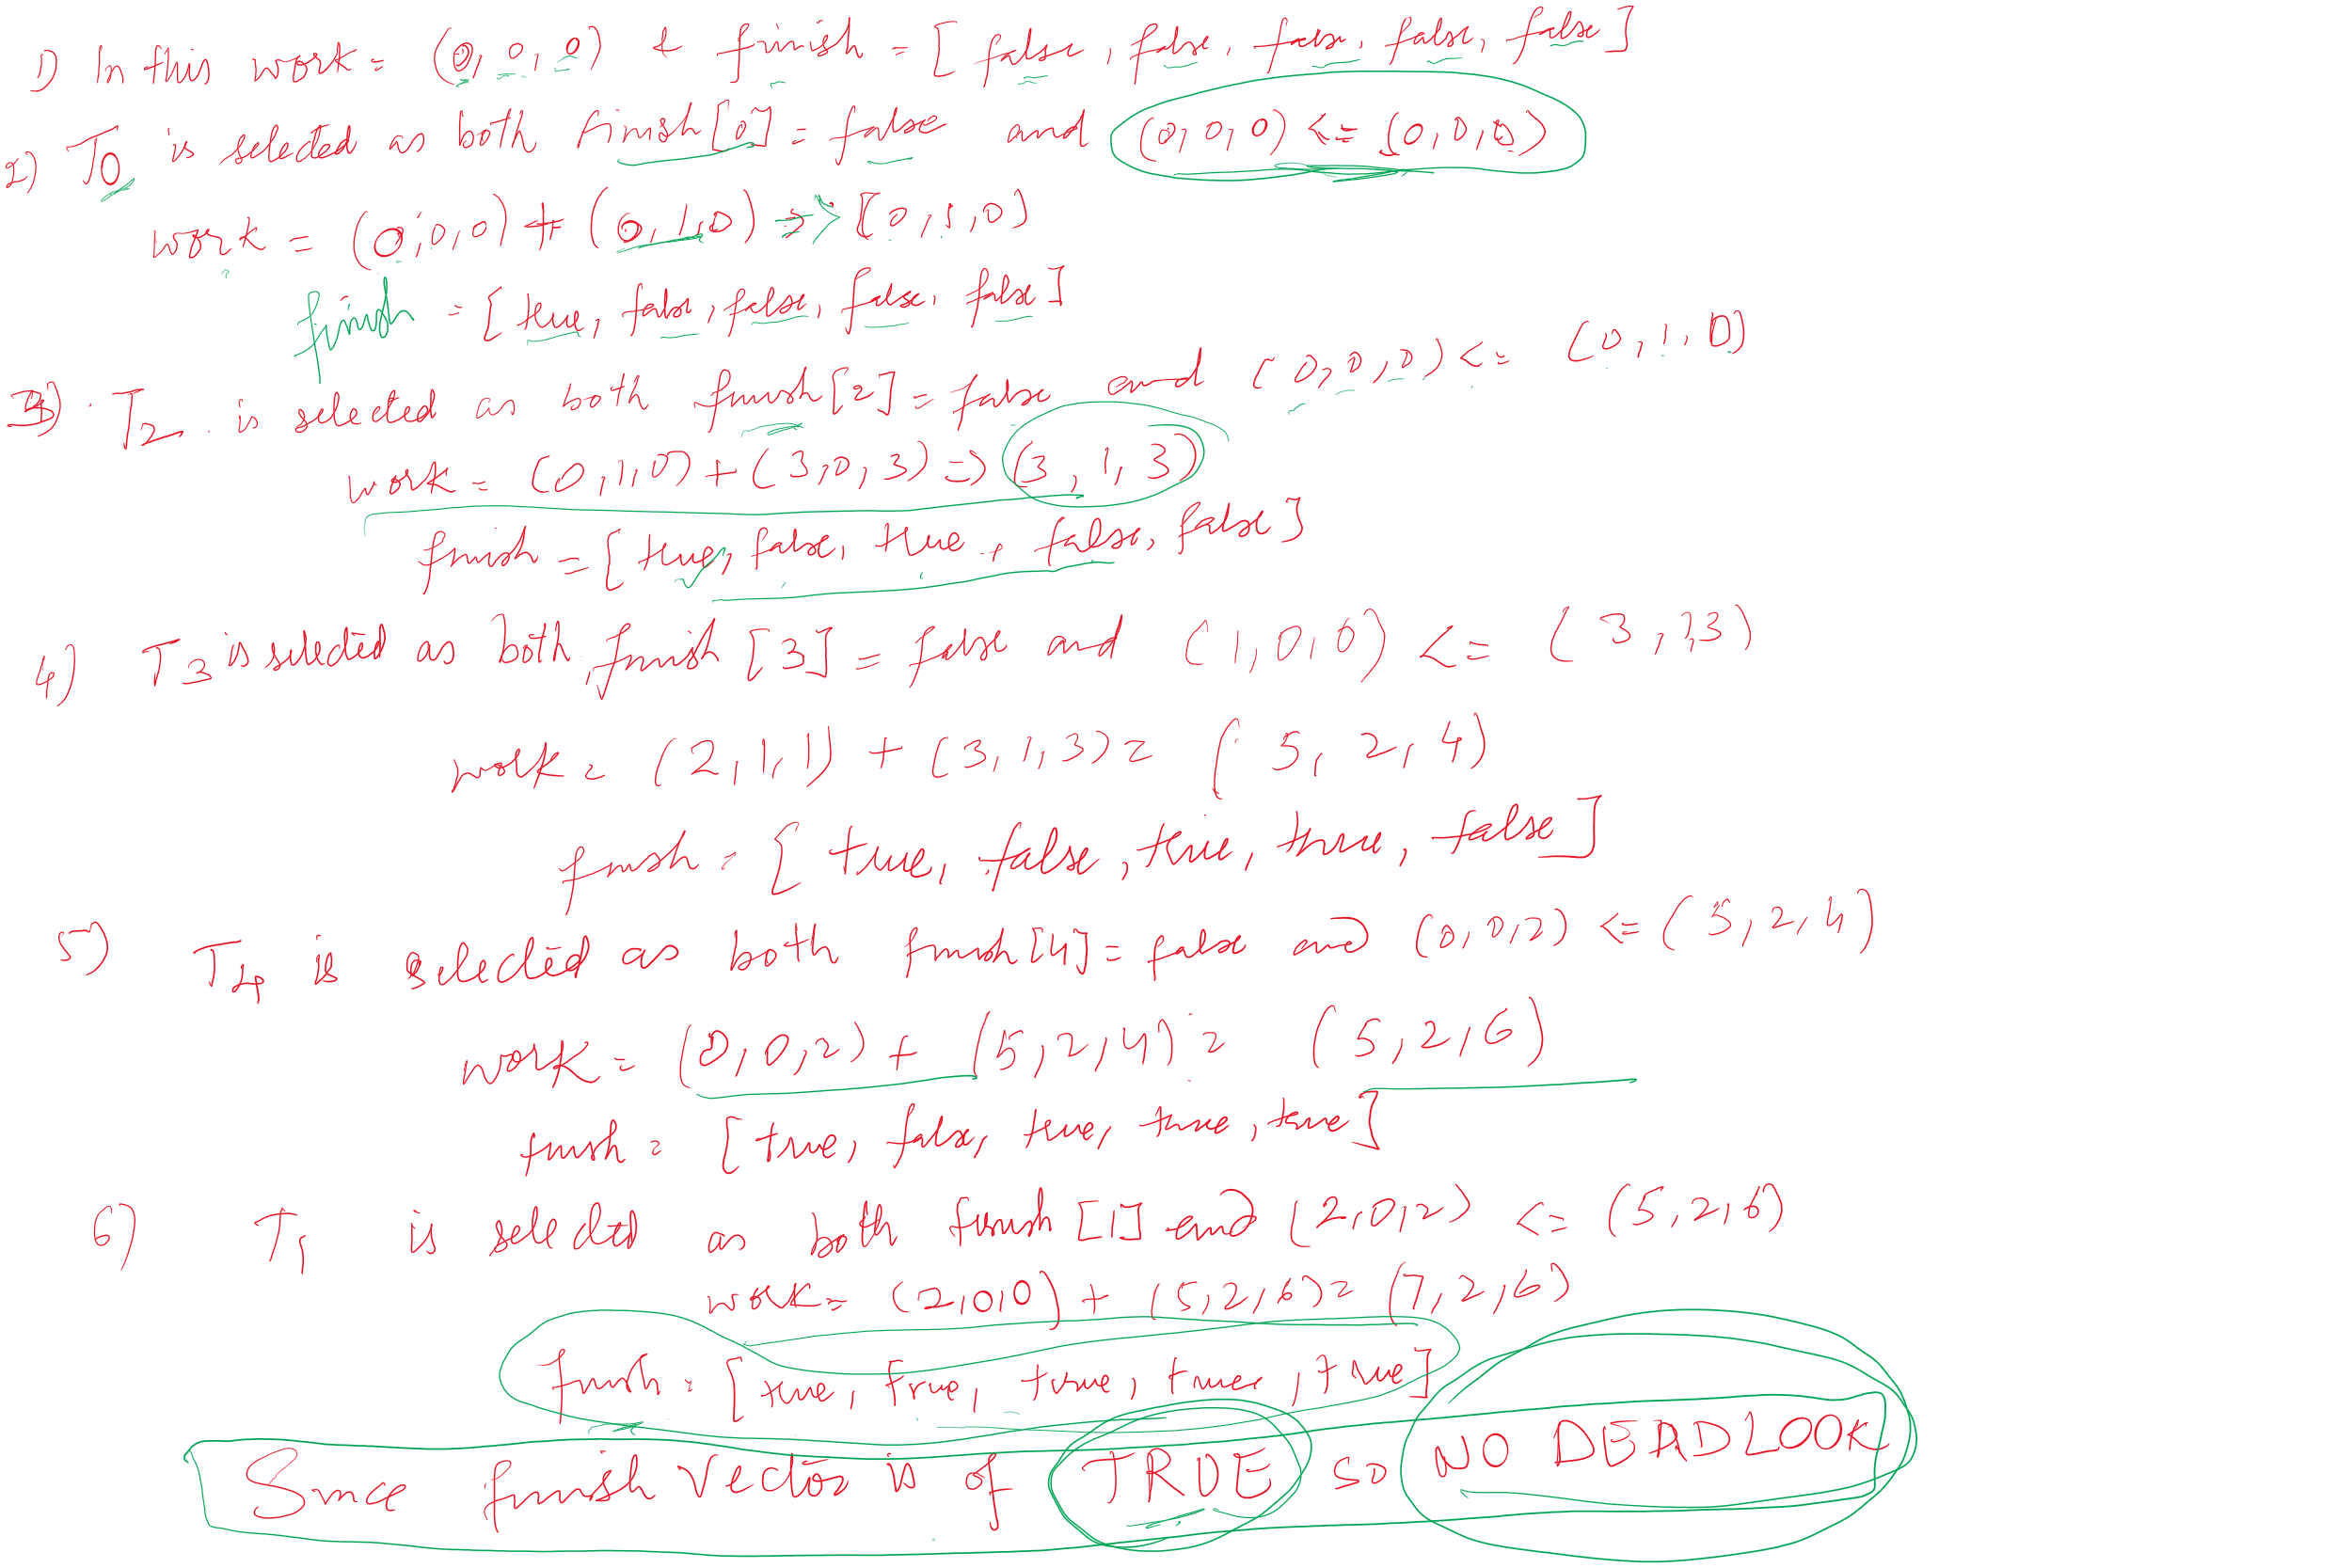 1) In this work = (0, 0, 0) & finish = [false, false, false, false, false]
2) T0 is selected as both finish[0] = false and (0, 0, 0) <= (0, 0, 0)
work = (0, 0, 0) + (0, 1, 0) => (0, 1, 0)
finish = [true, false, false, false, false]
3) T2 is selected as both finish[2] = false and (0, 0, 0) <= (0, 1, 0)
work = (0, 1, 0) + (3, 0, 3) => (3, 1, 3)
finish = [true, false, true, false, false]
4) T3 is selected as both finish [3] = false and (1, 0, 0) <= (3, 1, 3)
work = (2, 1, 1) + (3, 1, 3) = (5, 2, 4)
finish = [true, false, true, true, false]
5) T4 is selected as both finish[4] = false and (0, 0, 2) <= (5, 2, 4)
work = (0, 0, 2) + (5, 2, 4) = (5, 2, 6)
finish = [true, false, true, true, true]
6) T1 is selected as both finish [1] and (2, 0, 2) <= (5, 2, 6)
work = (2, 0, 0) + (5, 2, 6) = (7, 2, 6)
finish = [true, true, true, true, true]
Since finish vector is of TRUE so NO DEADLOOK